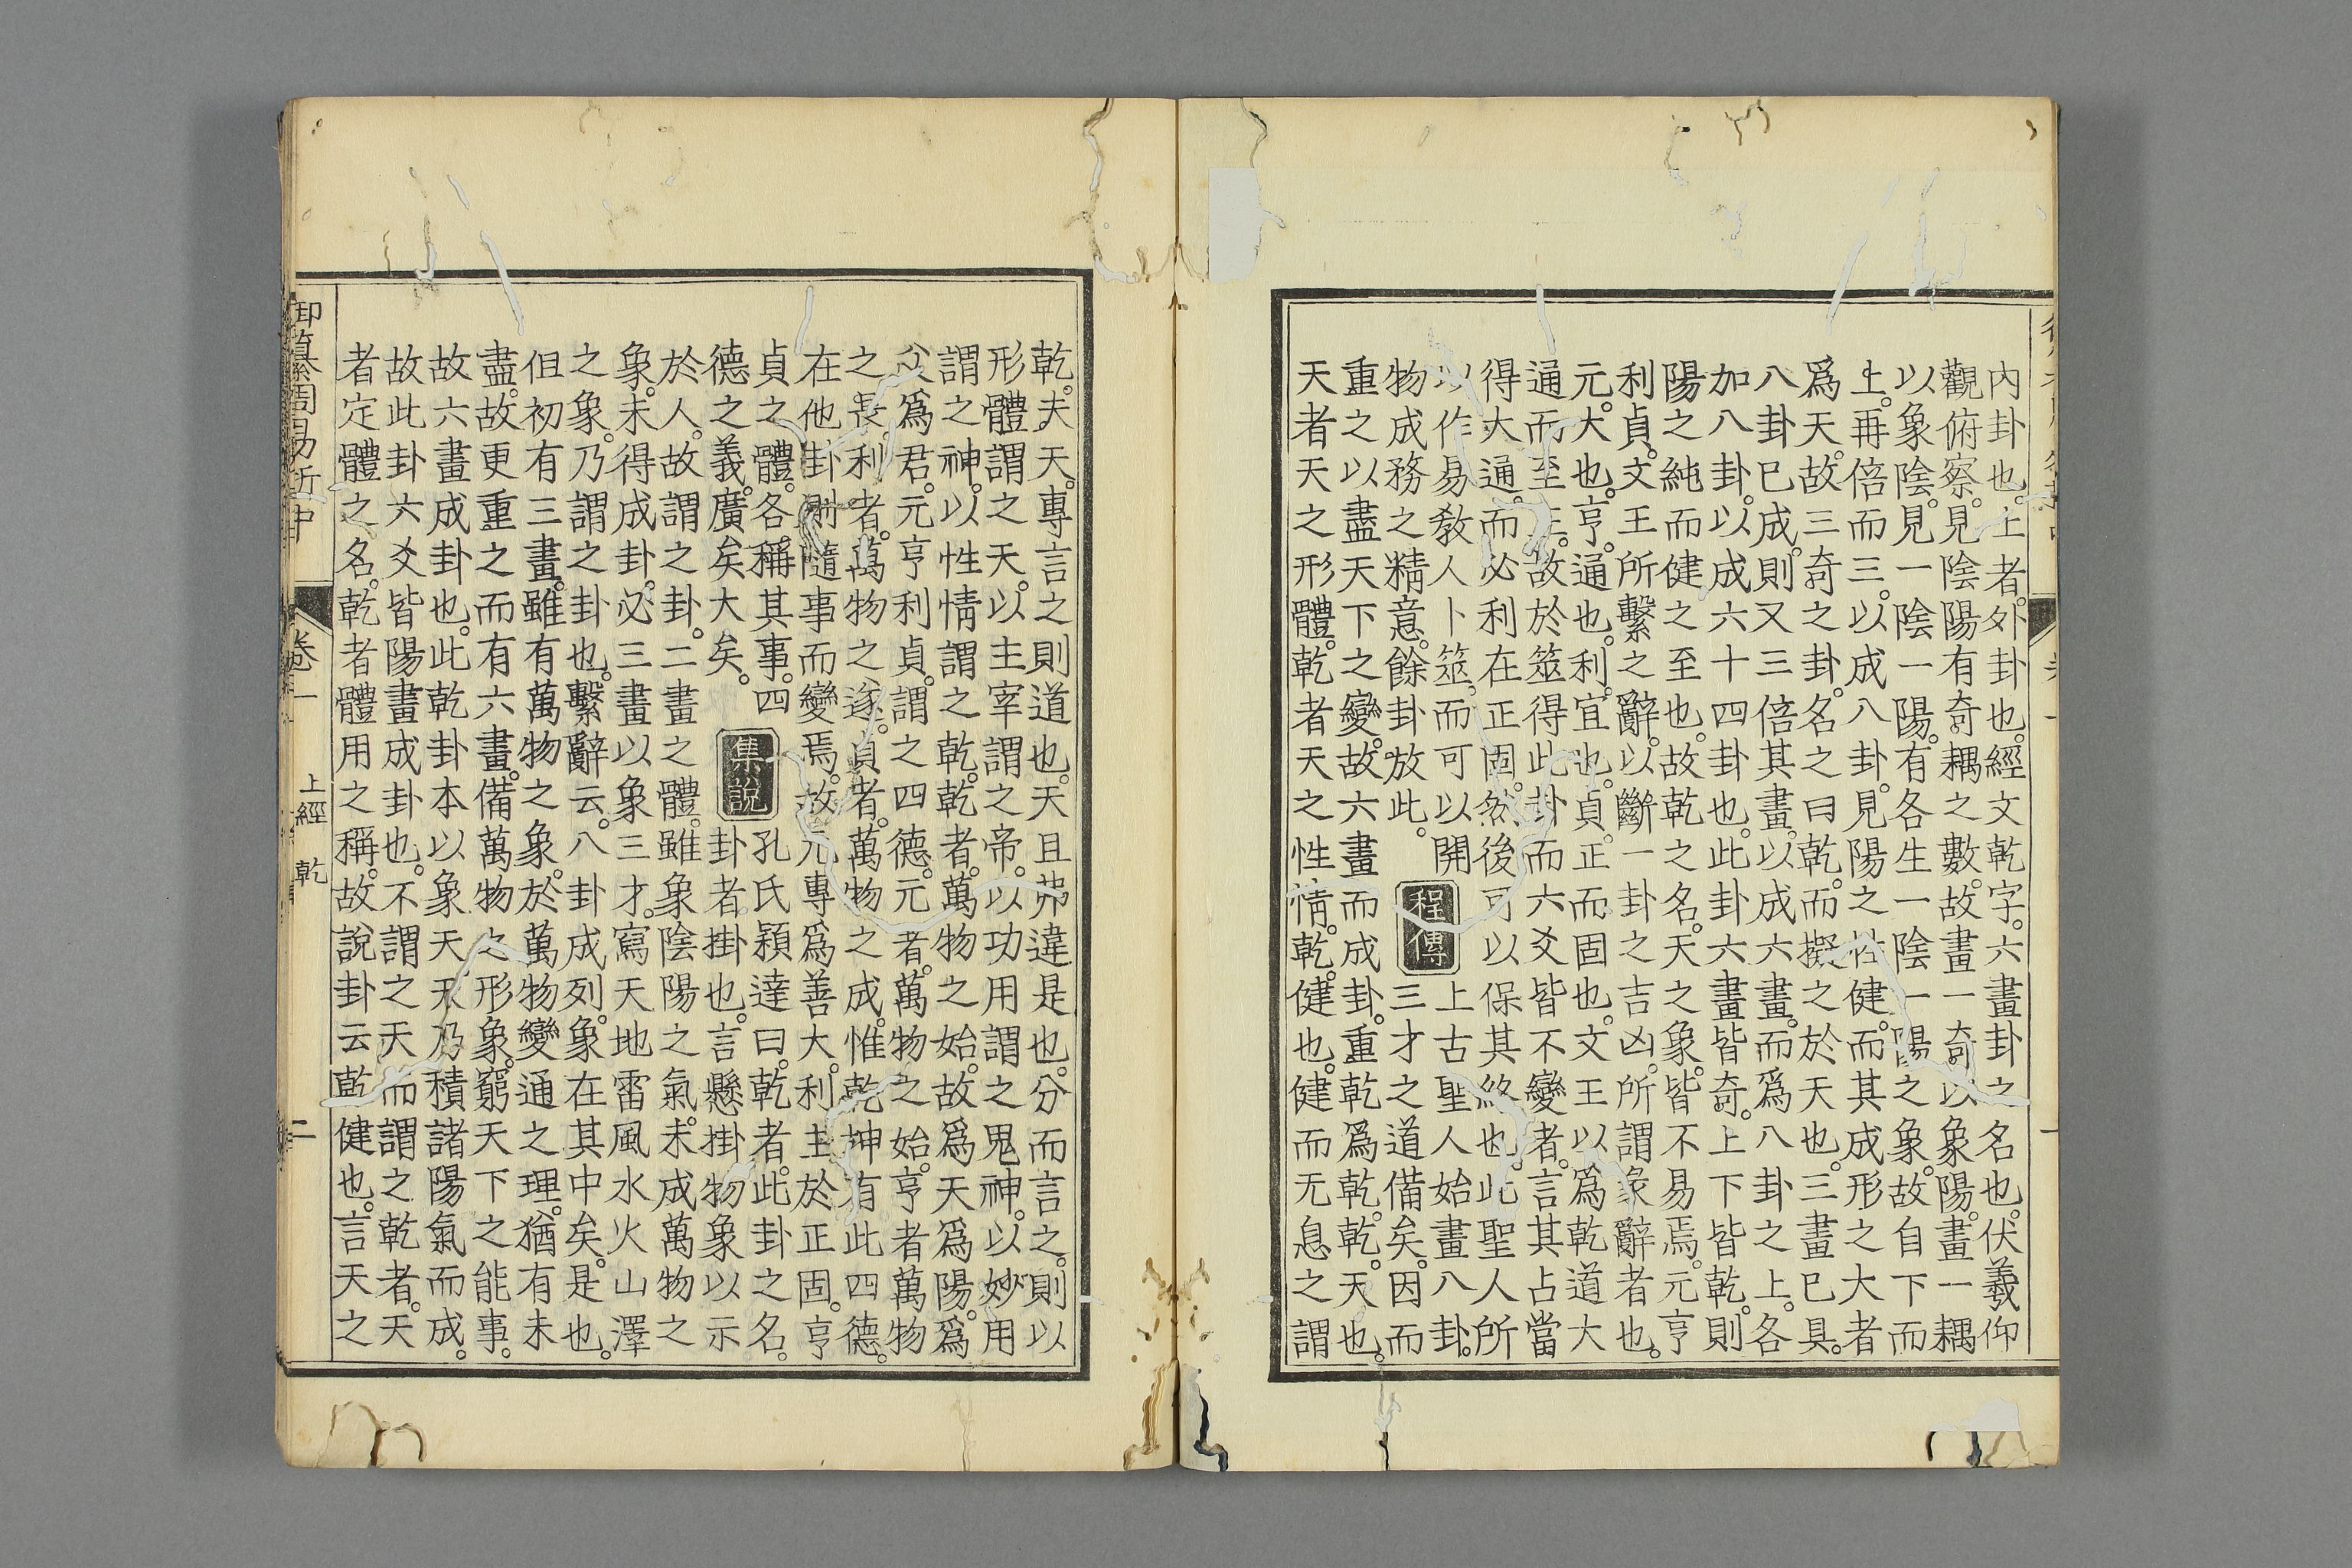 內卦也。上者。外卦也。經文乾字。六畫卦之名也。伏羲仰
觀俯察。見陰陽有奇耦之數。故畫一奇以象陽。畫一耦
以象陰。見一陰一陽。有各生一陰一陽之象。故自下而
上。再倍而三。以成八卦。見陽之性健。而其成形之大者
爲天。故三奇之卦。名之曰乾。而擬之於天也。三畫已具。
八卦已成。則又三倍其畫。以成六畫。而爲八卦之上。各
加八卦。以成六十四卦也。此卦六畫皆奇。上下皆乾。則
陽之純而健之至也。故乾之名。天之象。皆不易焉。元亨
利貞。文王所繫之辭。以斷一卦之吉凶。所謂彖辭者也。
元。大也。亨。通也。利。宜也。貞。正而固也。文王以爲乾道大
通而至正。故於筮得此卦而六爻皆不變者。言其占當
得大通。而必利在正固。然後可以保其終也。此聖人所
以作易敎人卜筮。而可以開
物成務之精意。餘卦放此。
程傳
上古聖人始畫八卦。
三才之道備矣。因而
重之以盡天下之變。故六畫而成卦。重乾爲乾。乾。天也。
天者天之形體。乾者天之性情。乾。健也。健而无息之謂
乾。夫天。專言之則道也。天且弗違是也。分而言之。則以
形體謂之天。以主宰謂之帝。以功用謂之鬼神。以妙用
謂之神。以性情謂之乾。乾者。萬物之始。故爲天爲陽。爲
父爲君。元亨利貞。謂之四德。元者。萬物之始。亨者萬物
之長。利者。萬物之遂。貞者。萬物之成。惟乾坤有此四德。
在他卦則隨事而變焉。故元專爲善大。利主於正固。亨
貞之體。各稱其事。四
德之義。廣矣大矣。
集說
孔氏穎達曰。乾者。此卦之名。
卦者。掛也。言懸掛物象以示
於人。故謂之卦。二畫之體。雖象陰陽之氣。未成萬物之
象。未得成卦。必三畫以象三才。寫天地雷風水火山澤
之象。乃謂之卦也。繫辭云。八卦成列。象在其中矣。是也。
但初有三畫。雖有萬物之象。於萬物變通之理。猶有未
盡。故更重之而有六畫。備萬物之形象。窮天下之能事。
故六畫成卦也。此乾卦本以象天。天乃積諸陽氣而成。
故此卦六爻皆陽畫成卦也。不謂之天而謂之乾者。天
者定體之名。乾者體用之稱。故說卦云乾健也。言天之
御纂周易折中 卷一 上經 乾 二